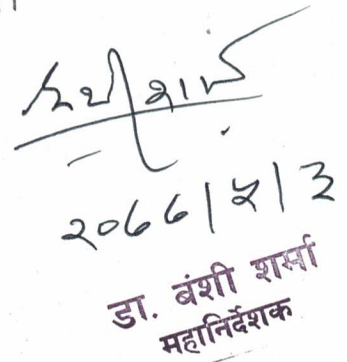 २०६६|५|३
डा. बंशी शर्मा
महानिर्देशक